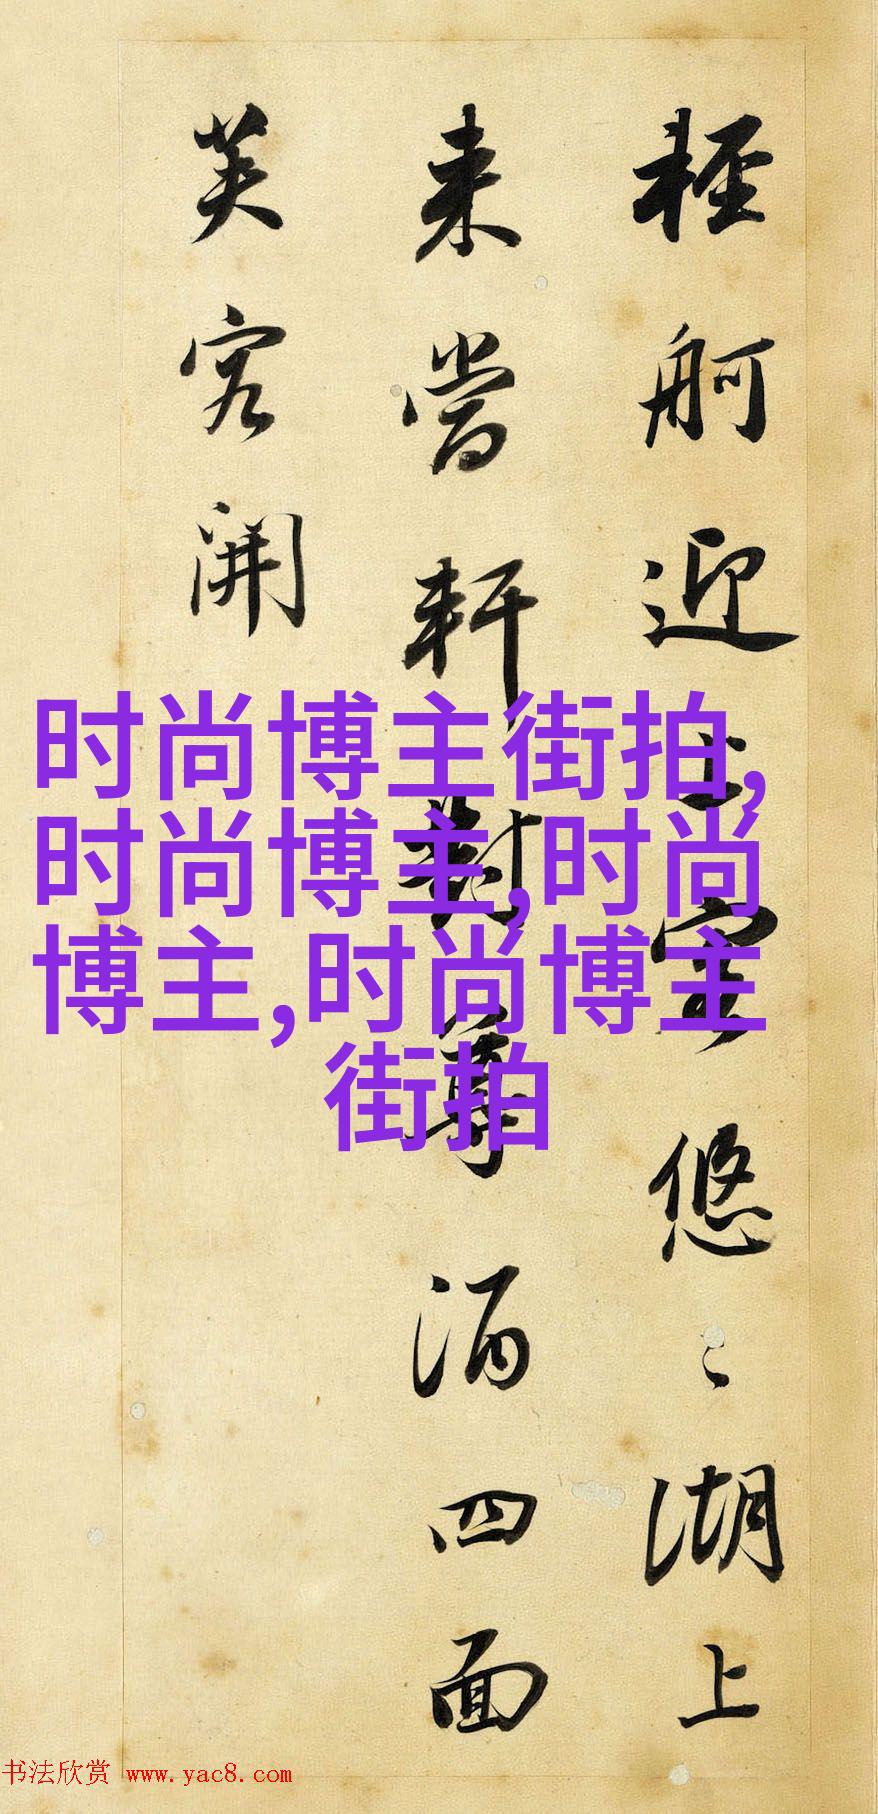 輕舸迎上客悠〻湖上
来當軒對尊酒四面
芙容開
时尚博主街拍,
时尚博主,时尚
博主,时尚博主
街拍
书法欣赏 www.yac8.com